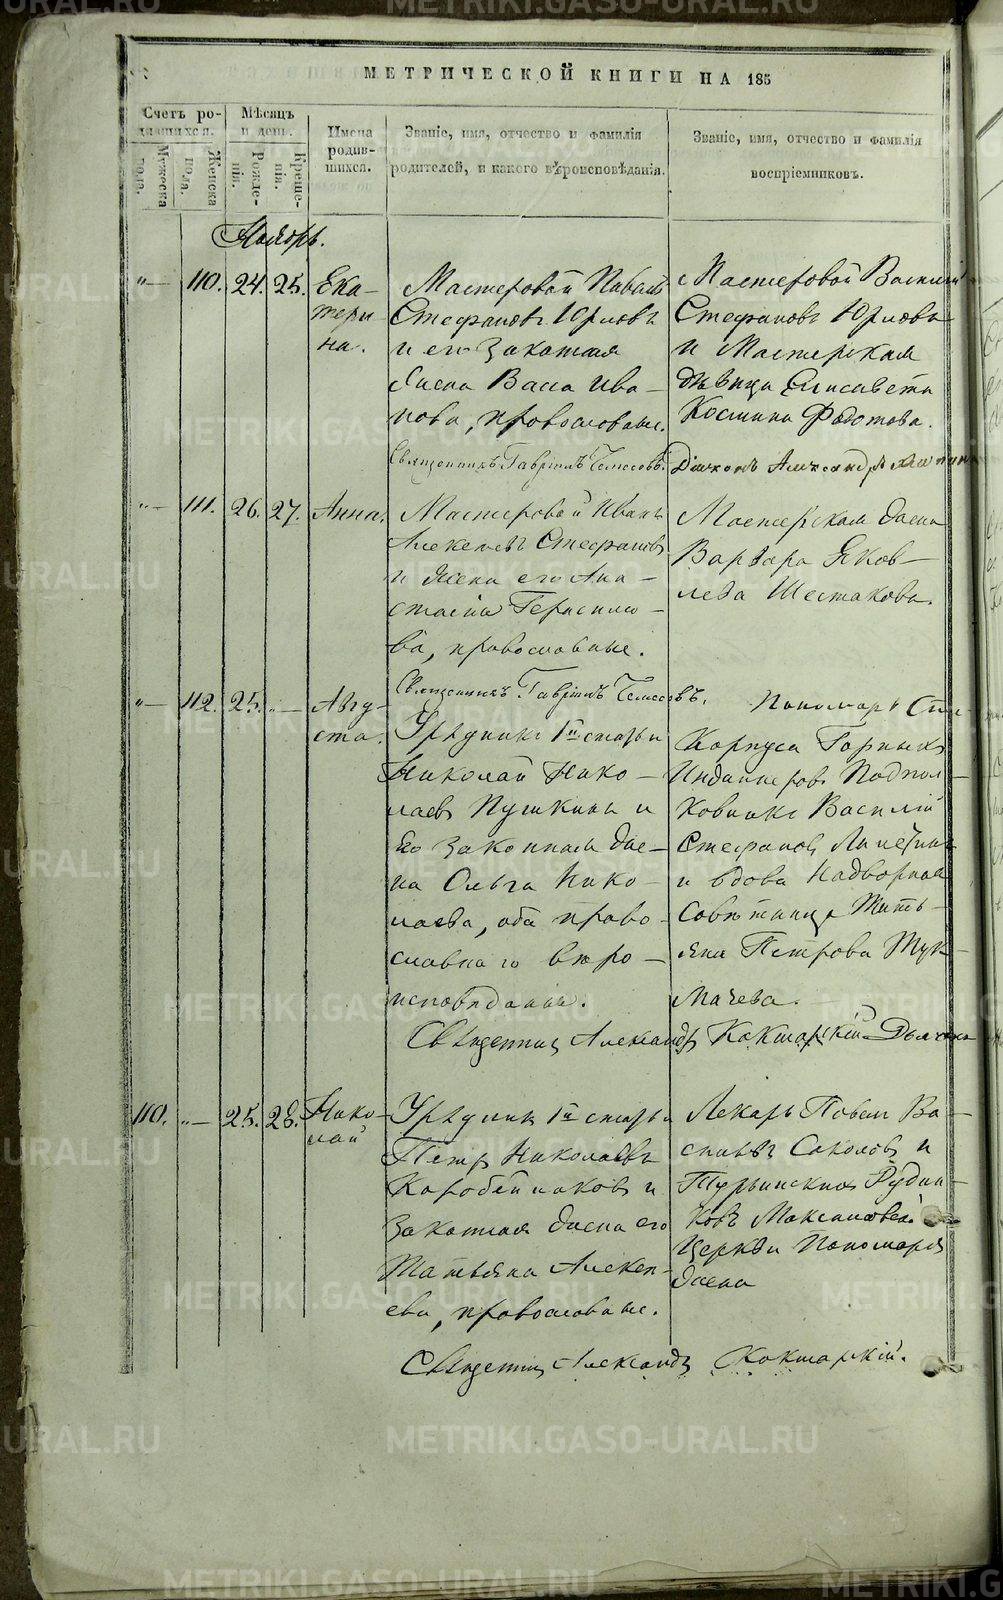 МЕТРИЧЕСКОЙ КНИГИ НА 185
Счетъ родившихся.
Мужеска пола.
Женска пола.
Мѣсяцъ и день.
Рожденія.
Крещенія.
Имена родившихся.
Званіе, имя, отчество и фамилія
родителей, и какого вѣроисповѣданія.
Званіе, имя, отчество и фамилія
воспріемниковъ.
Ноябрь.
"— 110. 24. 25.
Ека-
тери-
на.
Мастеровой Павелъ
Стефановъ Юрловъ
и его законная
жена Васса Ива-
нова, православные.
Священникъ Гавріилъ
Мастеровой Василій
Стефановъ Юрловъ
и Мастерская
дѣвица Елисавета
Космина Федотова.
Діаконъ Александръ
"— 111. 26. 27. Анна.
Мастеровой Иванъ
Алексеевъ Стефановъ
и жена его Ана-
стасія Герасимо-
ва, православные.
Священникъ Гавріилъ
Мастерская жена
Варвара Яков-
лева Шестакова.
Пономарь
"— 112. 25. "—
Авгу-
ста.
Урядникъ 1й статьи
Николай Нико-
лаевъ Пушкинъ и
его законная же-
на Ольга Нико-
лаева, оба право-
славнаго вѣро-
исповѣданія.
Корпуса Горныхъ
Инженеровъ Подпол-
ковникъ Василій
Стефановъ
и вдова Надворная
Совѣтница Тать-
яна Петрова Тук-
мачева.
Священникъ Александръ Кокшарскій Дьячокъ
110. "— 25. 28.
Нико-
лай
Урядникъ 1й статьи
Петръ Николаевъ
Коробейниковъ и
законная жена его
Татьяна Алексе-
ева, православные.
Лекарь Павелъ Ва-
сильевъ Соколовъ и
Турьинскихъ Рудни-
ковъ Максимовской
Церкви Пономаря
жена
Священникъ Александръ Кокшарскій.
METRIKI.GASO-URAL.RU